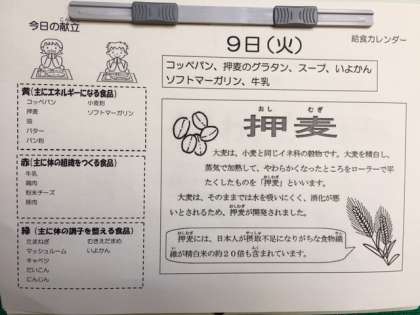 今日の献立
こんだて
9日(火)
給食カレンダー
コッペパン、押麦のグラタン、スープ、いよかん
ソフトマーガリン、牛乳
黄(主にエネルギーになる食品)
コッペパン 小麦粉
押麦 ソフトマーガリン
油
バター
パン粉
赤(主に体の組織をつくる食品)
牛乳
鶏肉
粉末チーズ
豚肉
緑(主に体の調子を整える食品)
たまねぎ むきえだまめ
マッシュルーム いよかん
キャベツ
だいこん
にんじん
おし むぎ
押麦
大麦は、小麦と同じイネ科の穀物です。大麦を精白し、
蒸気で加熱して、やわらかくなったところをローラーで平
おしむぎ
たくしたものを「押麦」といいます。
大麦は、そのままでは水を吸いにくく、消化が悪
おしむぎ
いとされるため、押麦が開発されました。
おしむぎ せっしゅ
押麦には、日本人が摂取不足になりがちな食物繊
維が精白米の約20倍も含まれています。